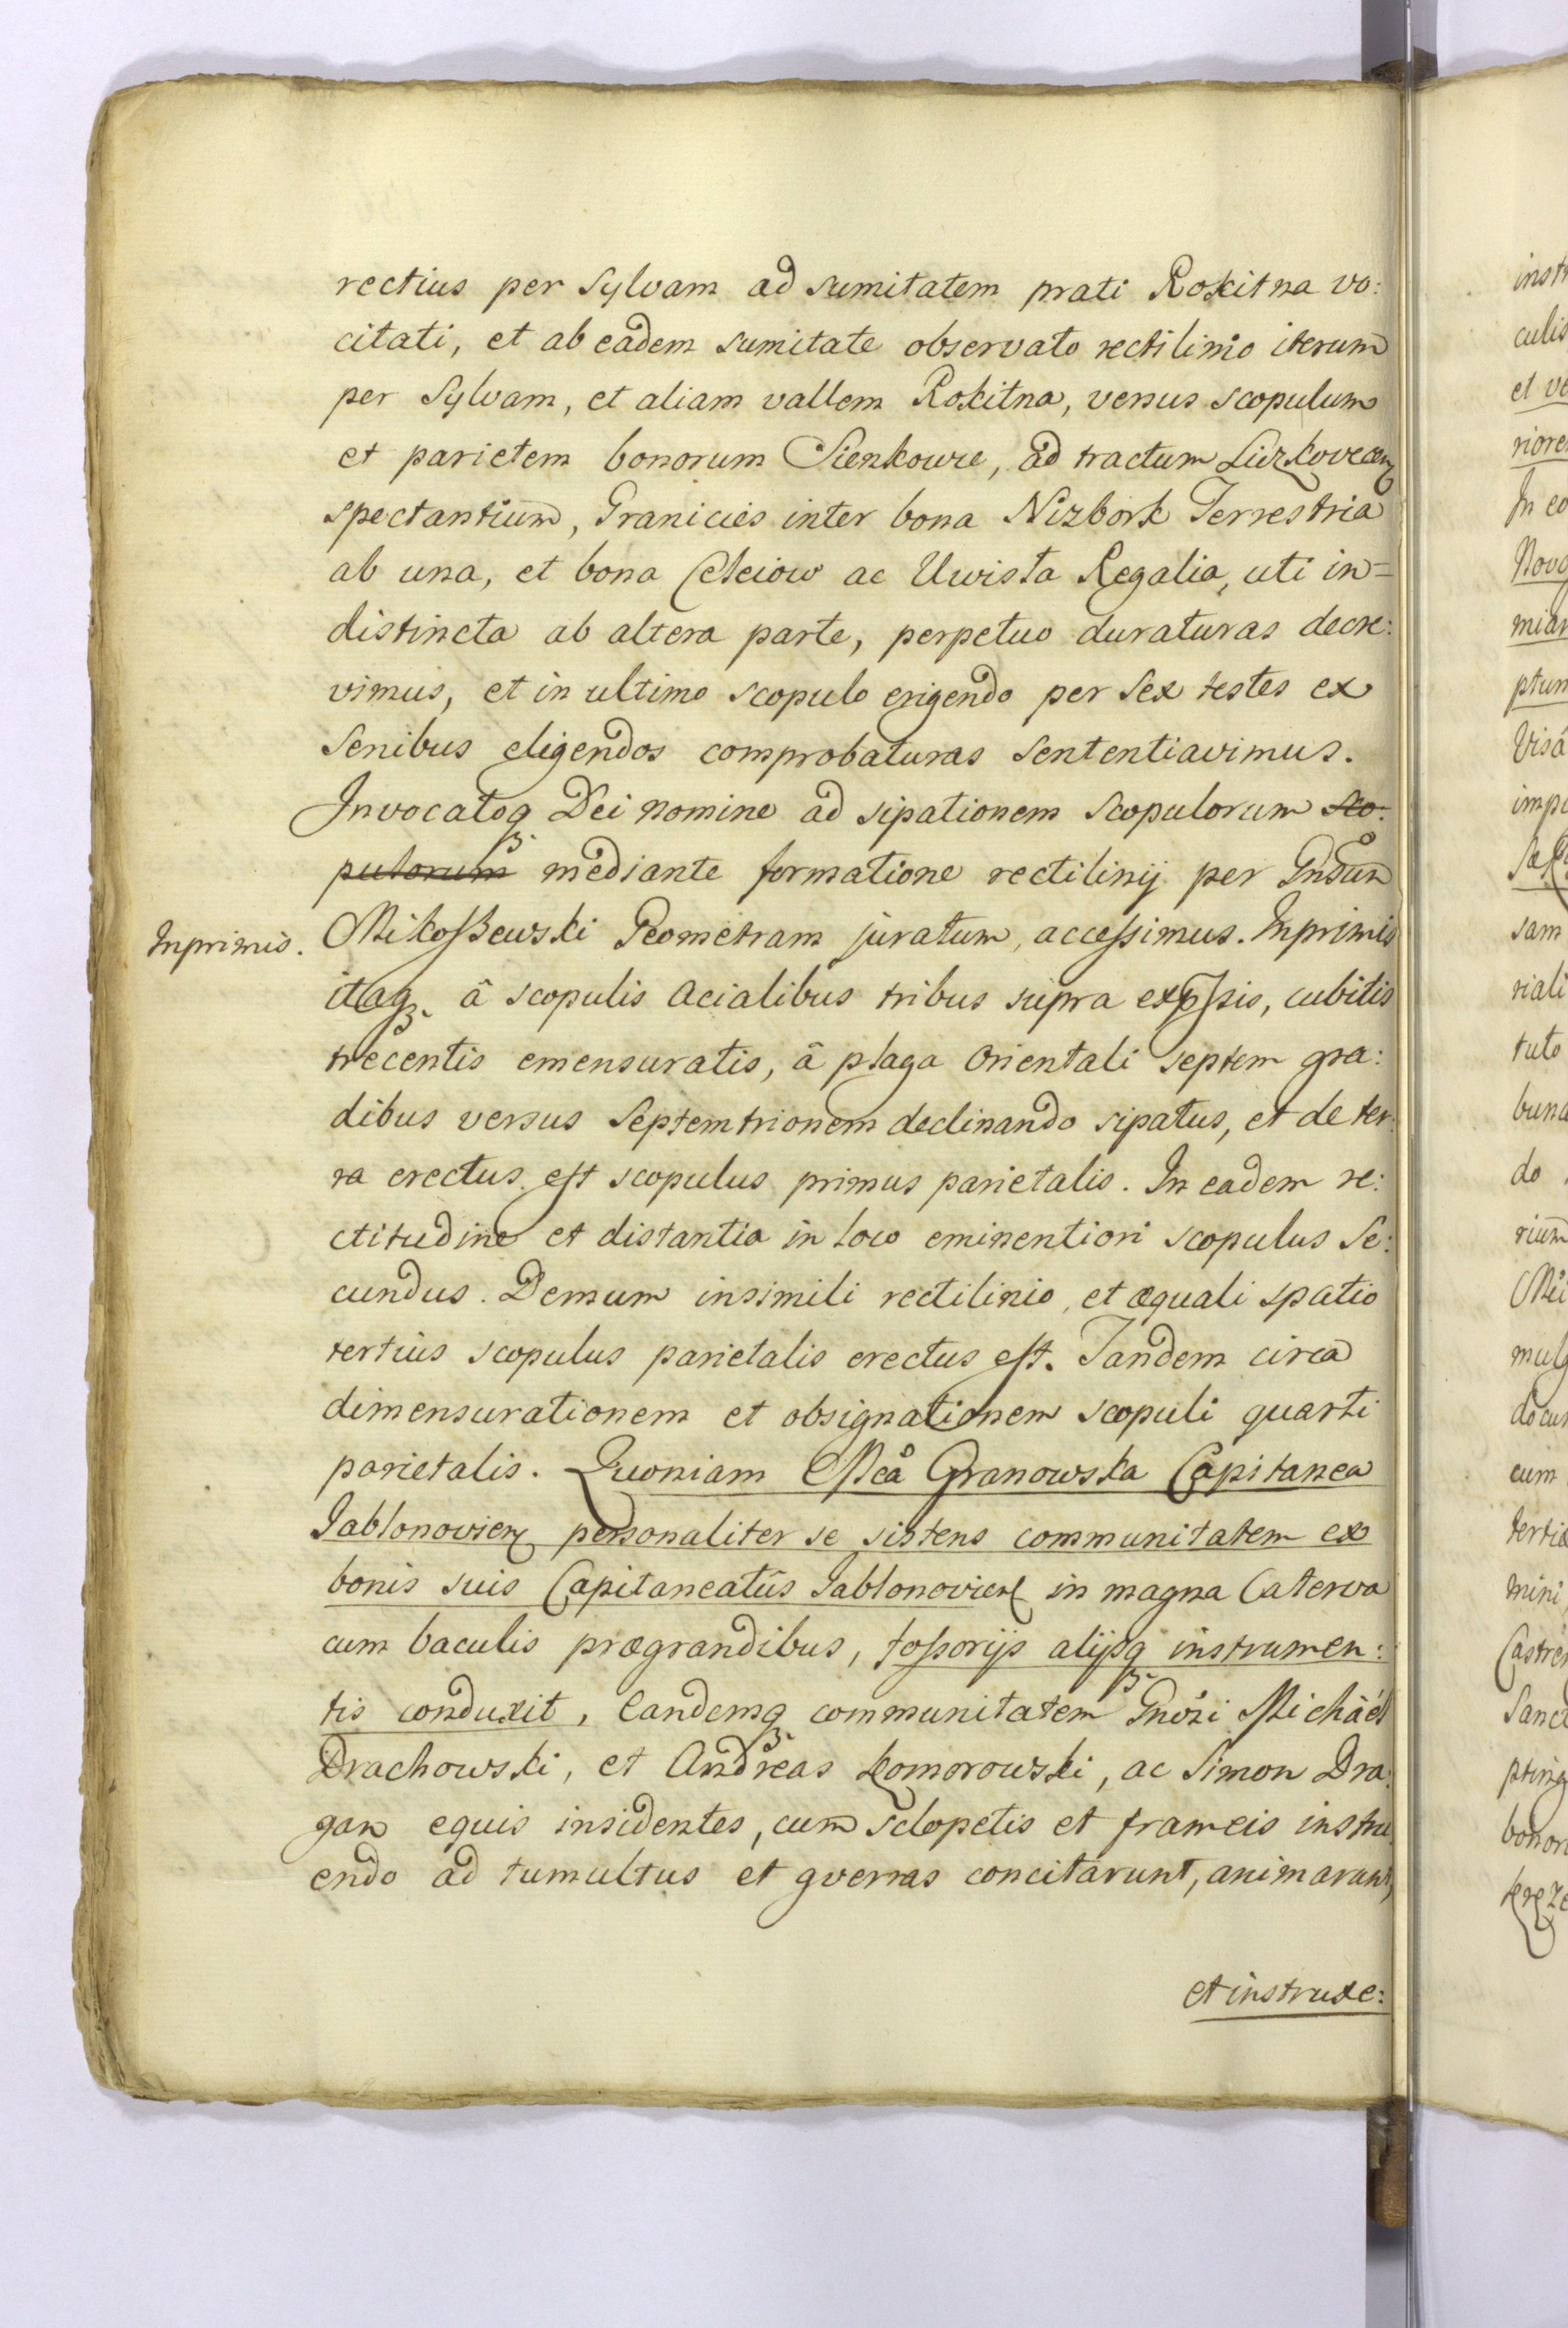 rectius per Sylvam ad sumitatem prati Rokitna vo:
citati, et ab eadem sumitate observato rectilinio iterum
per Sylvam, et aliam vallem Rokitna, versus scopulum
et parietem bonorum Sienkowce, ad tractum
spectantium, Granicies inter bona Nizbork Terrestria
ab una, et bona Celeiow ac Uwista Regalia, uti in=
distincta ab altera parte, perpetuo duraturas decre:
vimus, et in ultimo scopulo erigendo per Sex testes ex
Senibus eligendos comprobaturas Sententiavimus.
Invocatoq₃ Dei nomine ad sipationem Scopulorum sco:
pulorum mediante formatione rectilinij per Gndum
Inprimis. Mikoszewski Geometram juratum, accessimus. Inprimis
itaq₃ â scopulis acialibus tribus supra expssis, cubitis
trecentis emensuratis, â plaga Orientali septem gra:
dibus versus Septemtrionem declinando sipatus, et de ter:
ra erectus est scopulus primus parietalis. In eadem re:
ctitudine et distantia in loco eminentiori scopulus Se:
cundus. Demum insimili rectilinio, et æquali spatio
tertius scopulus parietalis erectus est. Tandem circa
dimensurationem et obsignationem scopuli quarti
parietalis. Quoniam Mca Granowska Capitanea
Jablonovien personaliter se sistens communitatem ex
bonis suis Capitaneatûs Jablonovien in magna Caterva
cum baculis prægrandibus, fossorijs alijsq₃ instrumen:
tis conduxit, Eandemq₃ communitatem Gnosi Michaël
Drachowski, et Andreas Komorowski, ac Simon Dra:
gan equis insidentes, cum sclopetis et frameis instru
endo ad tumultus et gverras concitârunt, animarunt,
et instruxe:
inst
culis
et ve
riore
In eo
Novo
miar
ptum
Visâ
impe
sam
riali
tuto
buna
do
rium
mulg
docu
cum
terti
mini
Castre
Sanc
pting
bonor